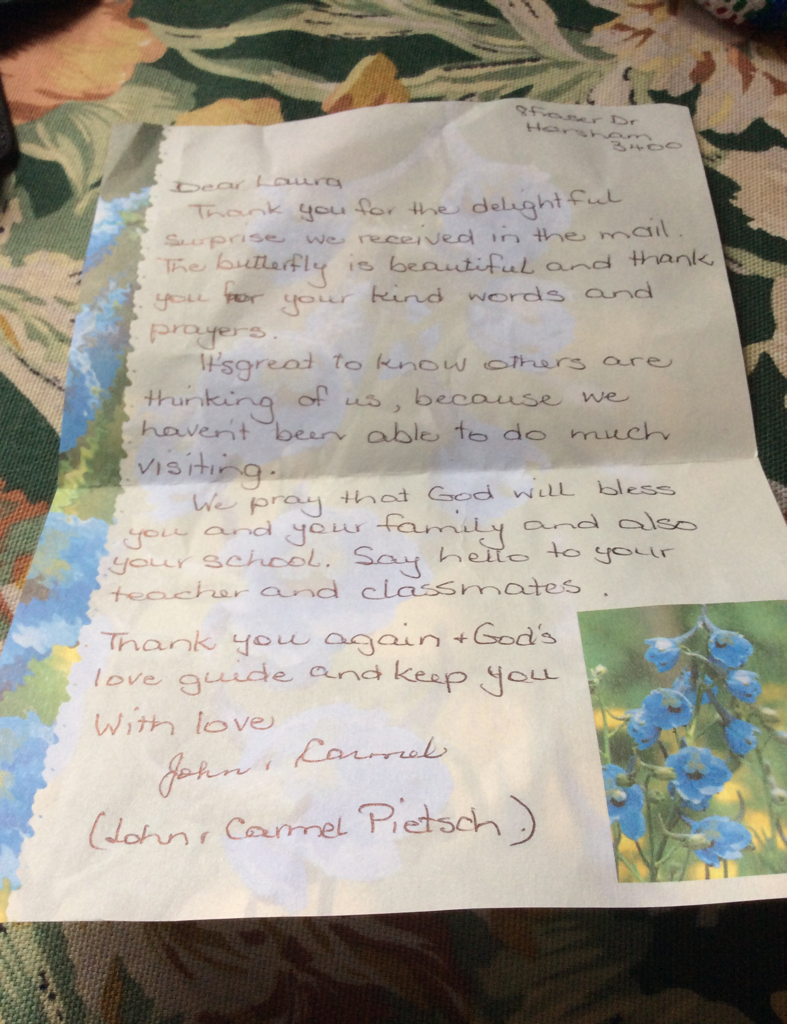 8 Fraser Dr
Horsham
3400
Dear Laura
Thank you for the delightful
surprise we received in the mail.
The butterfly is beautiful and thank
you for your kind words and
prayers.
It's great to know others are
thinking of us, because we
haven't been able to do much
visiting.
We pray that God will bless
you and your family and also
your school. Say hello to your
teacher and classmates.
Thank you again + God's
love guide and keep you
With love
John, Carmel
(John, Carmel Pietsch.)